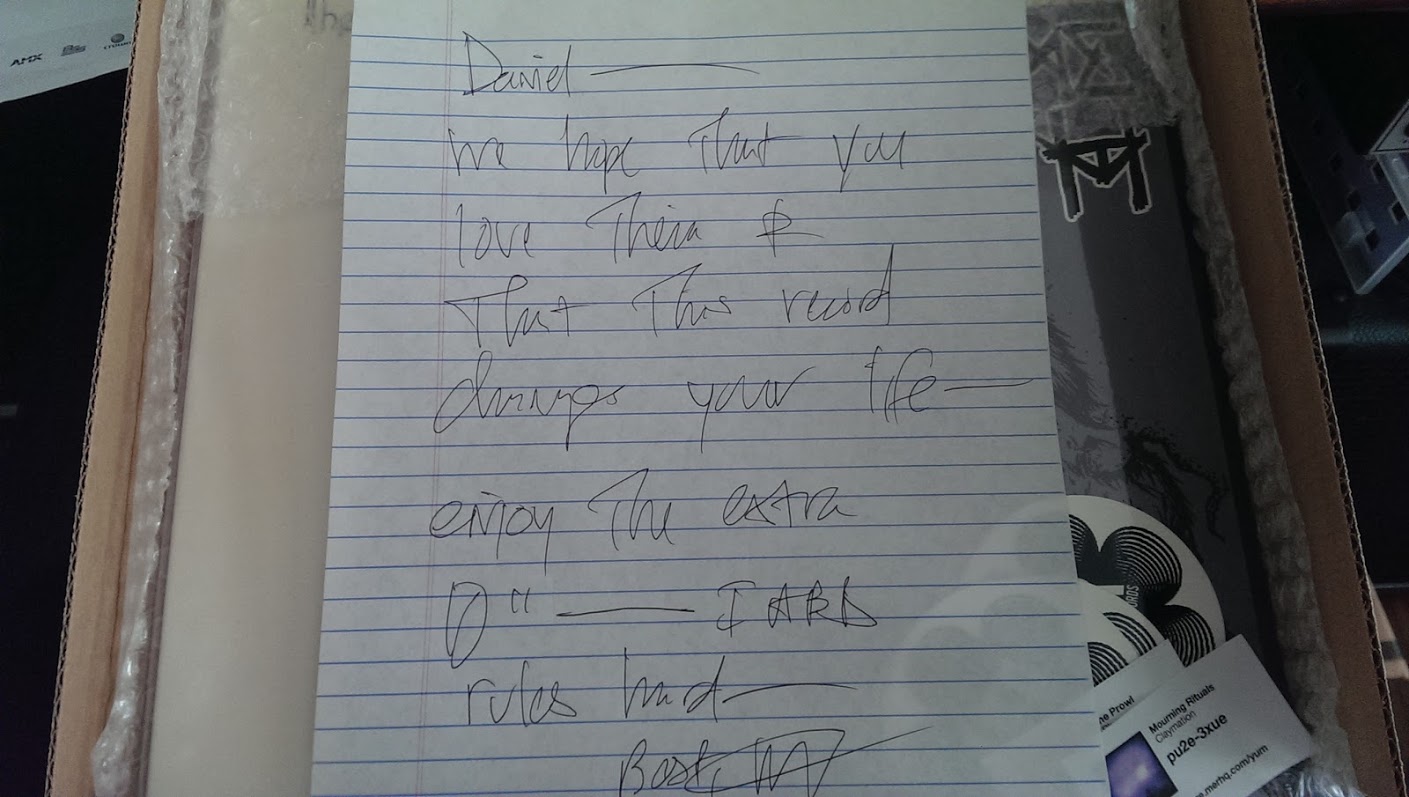 Daniel —
we hope That you
love Them &
That This record
changes your life —
enjoy The extra
— IARD
rules hard —
Best,
AMX
CROWN
TM
RDS
he Prowl
Mourning Rituals
Claymation
pu2e-3xue
.merhq.com/yum